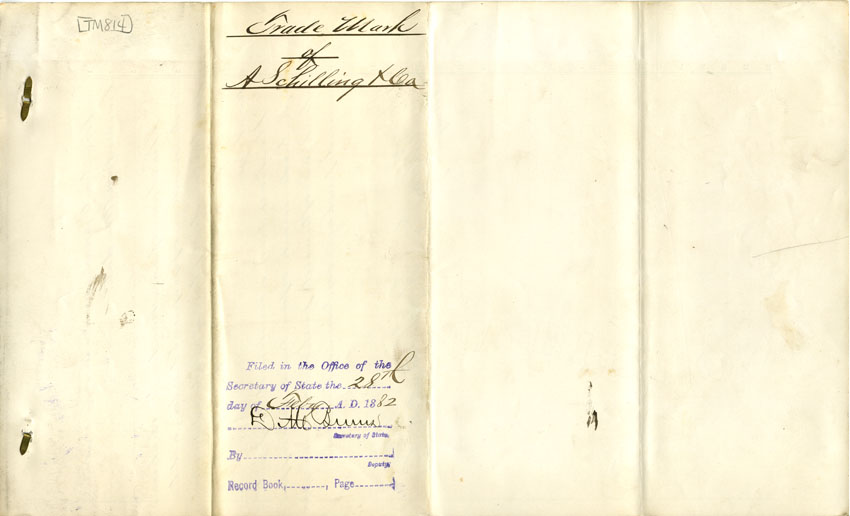 [TM814]
Trade Mark
of
A Schilling & Co
Filed in the Office of the
Secretary of State the 28th
day of Feby A. D. 1882
Secretary of State.
By
Deputy
Record Book, , Page